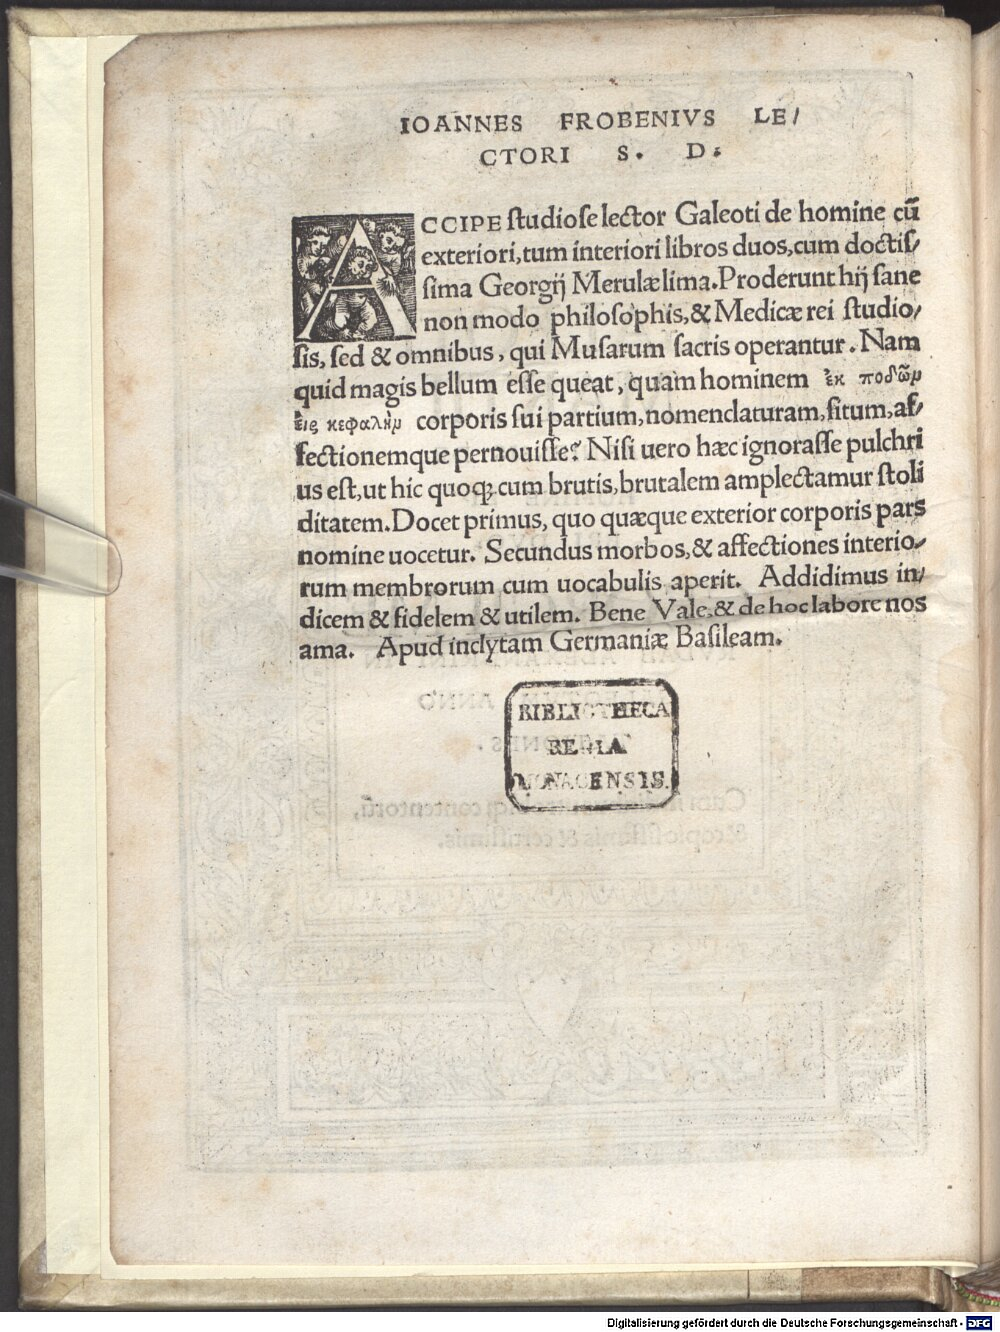 IOANNES FROBENIVS LE/
CTORI S. D.
ACCIPE studiose lector Galeoti de homine cū
exteriori, tum interiori libros duos, cum doctis/
sima Georgij Merulæ lima. Proderunt hij sane
non modo philosophis, & Medicæ rei studio/
sis, sed & omnibus, qui Musarum sacris operantur. Nam
quid magis bellum esse queat, quam hominem ἐκ ποδῶμ
ἐις κεφαλὴμ corporis sui partium, nomenclaturam, situm, af/
fectionemque pernouisse? Nisi uero hæc ignorasse pulchri
us est, ut hic quoq; cum brutis, brutalem amplectamur stoli
ditatem. Docet primus, quo quæque exterior corporis pars
nomine uocetur. Secundus morbos, & affectiones interio/
rum membrorum cum uocabulis aperit. Addidimus in/
dicem & fidelem & utilem. Bene Vale, & de hoc labore nos
ama. Apud inclytam Germaniæ Basileam.
BIBLIOTHECA
REGIA
MONACENSIS.
Digitalisierung gefördert durch die Deutsche Forschungsgemeinschaft - DFG